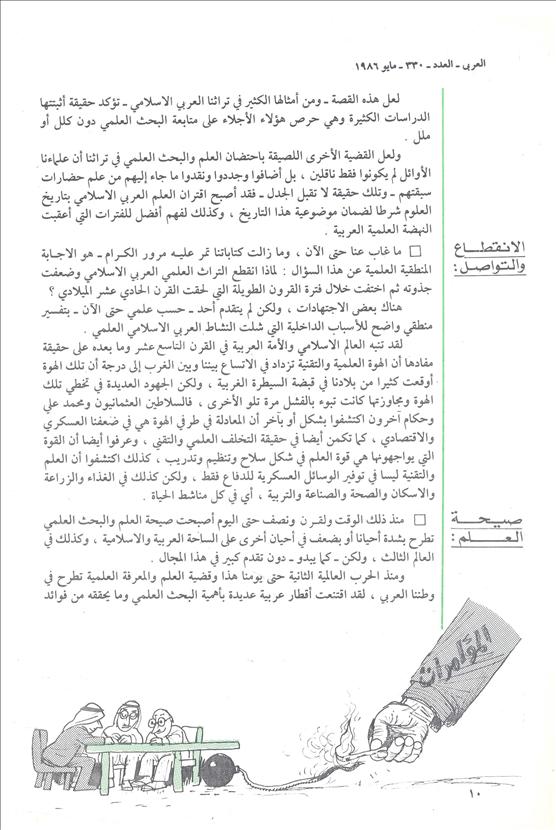 العربي ـ العدد ـ ٣٣٠ ـ مايو ١٩٨٦
لعل هذه القصة ـ ومن أمثالها الكثير في تراثنا العربي الاسلامي ـ تؤكد حقيقة أثبتتها
الدراسات الكثيرة وهي حرص هؤلاء الأجلاء على متابعة البحث العلمي دون كلل أو
ملل .
ولعل القضية الأخرى اللصيقة باحتضان العلم والبحث العلمي في تراثنا أن علماءنا
الأوائل لم يكونوا فقط ناقلين ، بل أضافوا وجددوا ونقدوا ما جاء إليهم من علم حضارات
سبقتهم ـ وتلك حقيقة لا تقبل الجدل ـ فقد أصبح اقتران العلم العربي الاسلامي بتاريخ
العلوم شرطا لضمان موضوعية هذا التاريخ ، وكذلك لفهم أفضل للفترات التي أعقبت
النهضة العلمية العربية .
الانقطاع
والتواصل :
□ ما غاب عنا حتى الآن ، وما زالت كتاباتنا تمر عليه مرور الكرام ـ هو الاجابة
المنطقية العلمية عن هذا السؤال : لماذا انقطع التراث العلمي العربي الاسلامي وضعفت
جذوته ثم اختفت خلال فترة القرون الطويلة التي لحقت القرن الحادي عشر الميلادي ؟
هناك بعض الاجتهادات ، ولكن لم يتقدم أحد ـ حسب علمي حتى الآن ـ بتفسير
منطقي واضح للأسباب الداخلية التي شلت النشاط العربي الاسلامي العلمي .
لقد تنبه العالم الاسلامي والأمة العربية في القرن التاسع عشر وما بعده على حقيقة
مفادها أن الهوة العلمية والتقنية تزداد في الاتساع بيننا وبين الغرب إلى درجة أن تلك الهوة
أوقعت كثيرا من بلادنا في قبضة السيطرة الغربية ، ولكن الجهود العديدة في تخطي تلك
الهوة ومجاوزتها كانت تبوء بالفشل مرة تلو الأخرى ، فالسلاطين العثمانيون ومحمد علي
وحكام آخرون اكتشفوا بشكل أو بآخر أن المعادلة في طرفي الهوة هي في ضعفنا العسكري
والاقتصادي ، كما تكمن أيضا في حقيقة التخلف العلمي والتقني ، وعرفوا أيضا أن القوة
التي يواجهونها هي قوة العلم في شكل سلاح وتنظيم وتدريب ، كذلك اكتشفوا أن العلم
والتقنية ليسا في توفير الوسائل العسكرية للدفاع فقط ، ولكن كذلك في الغذاء والزراعة
والاسكان والصحة والصناعة والتربية ، أي في كل مناشط الحياة .
صيحة
العلم :
□ منذ ذلك الوقت ولقرن ونصف حتى اليوم أصبحت صيحة العلم والبحث العلمي
تطرح بشدة أحيانا أو بضعف في أحيان أخرى على الساحة العربية والاسلامية ، وكذلك في
العالم الثالث ، ولكن ـ كما يبدو ـ دون تقدم كبير في هذا المجال .
ومنذ الحرب العالمية الثانية حتى يومنا هذا وقضية العلم والمعرفة العلمية تطرح في
وطننا العربي ، لقد اقتنعت أقطار عربية عديدة بأهمية البحث العلمي وما يحققه من فوائد
المؤامرات
١٠